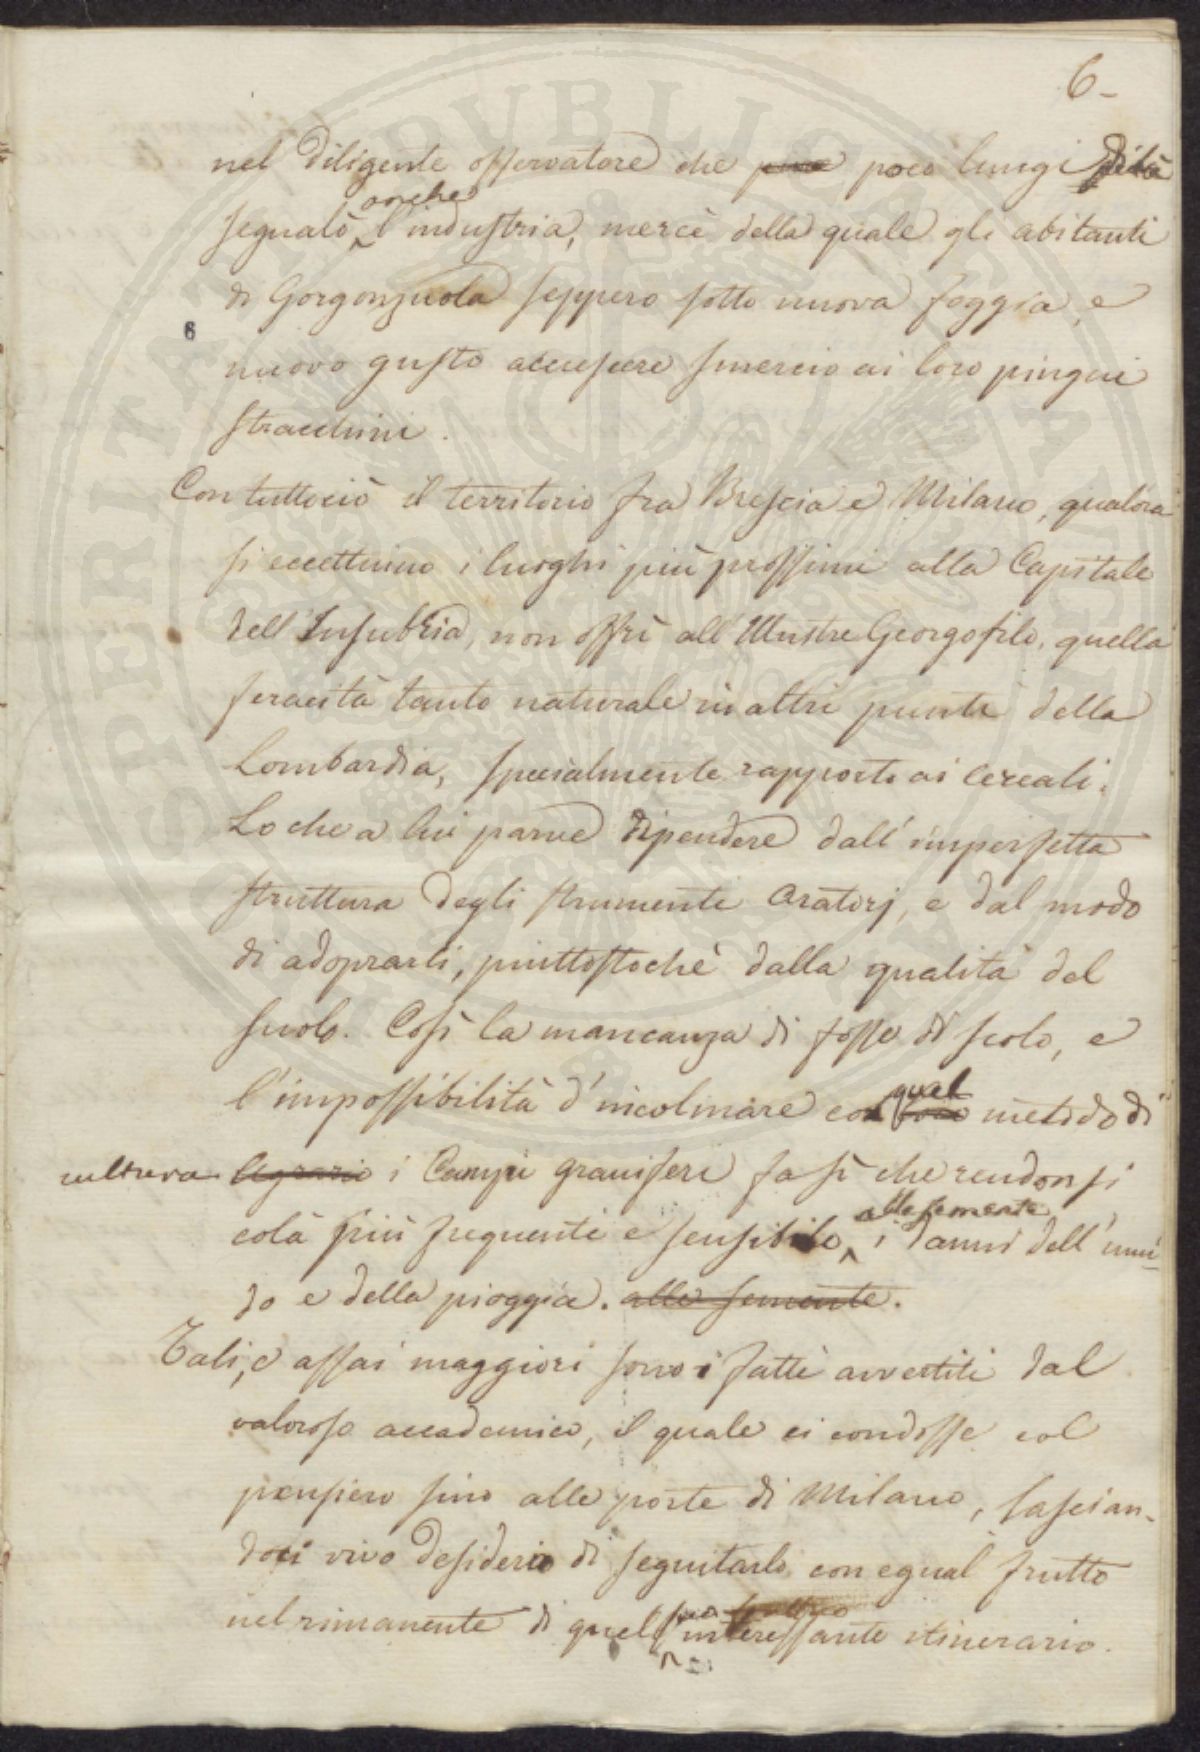 6-
nel diligente osservatore che poco lungi di là
anche
segnalò l'industria, mercè della quale gli abitanti
di Gorgonzuola seppero sotto nuova foggia, e
6
nuovo gusto accrescere smercio ai loro pingui
stracchini.
Contuttociò il territorio fra Brescia e Milano, qualora
si eccettuino i luoghi più prossimi alla Capitale
dell'Insubria, non offrì all'Illustre Georgofilo, quella
feracità tanto naturale in altri punti della
Lombardia, specialmente rapporto ai cereali.
Lo che a lui parve dipendere dall'imperfetta
struttura degli strumenti aratorj, e dal modo
di adoprarli, piuttostochè dalla qualità del
suolo. Così la mancanza di fosse di scolo, e
qual
l'impossibilità d'incolmare con metodo di
cultura agrario i Campi graniferi fa sì che rendonsi
alle semente
colà più frequenti e sensibile i danni dell'umi-
do e della pioggia. alle semente.
Tali, e assai maggiori sono i fatti avvertiti dal
valoroso accademico, il quale ci condosse col
pensiero sino alle porte di Milano, lascian-
doci vivo desiderio di seguitarlo con egual frutto
nel rimanente di quel suo interessante itinerario.